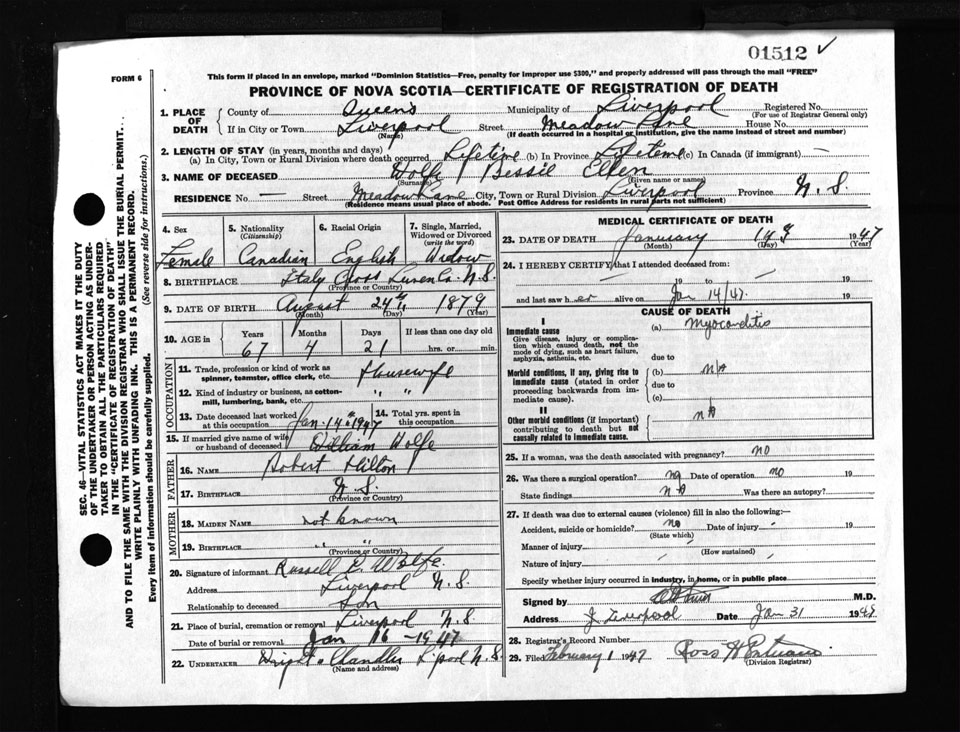 01512 ✓
FORM 6
This form if placed in an envelope, marked "Dominion Statistics—Free, penalty for improper use $300," and properly addressed will pass through the mail "FREE"
PROVINCE OF NOVA SCOTIA—CERTIFICATE OF REGISTRATION OF DEATH
1. PLACE OF DEATH
County of Queens Municipality of Liverpool Registered No.
(For use of Registrar General only)
If in City or Town Liverpool Street Meadow Lane House No.
(Name) (If death occurred in a hospital or institution, give the name instead of street and number)
2. LENGTH OF STAY (in years, months and days)
(a) In City, Town or Rural Division where death occurred Lifetime (b) In Province Lifetime (c) In Canada (if immigrant) —
3. NAME OF DECEASED Wolfe Bessie Ellen
(Surname) (Given name or names)
RESIDENCE No. — Street Meadow Lane City, Town or Rural Division Liverpool Province N. S.
(Residence means usual place of abode. Post Office Address for residents in rural parts not sufficient)
4. Sex 5. Nationality (Citizenship) 6. Racial Origin 7. Single, Married, Widowed or Divorced (write the word)
Female Canadian English Widow
8. BIRTHPLACE Italy Cross Lunen Co. N. S.
(Province or Country)
9. DATE OF BIRTH August 24th 1879
(Month) (Day) (Year)
10. AGE in Years Months Days If less than one day old
67 4 21 hrs. or min.
OCCUPATION
11. Trade, profession or kind of work as spinner, teamster, office clerk, etc. Housewife
12. Kind of industry or business, as cotton-mill, lumbering, bank, etc. " "
13. Date deceased last worked at this occupation Jan. 14th 1947 14. Total yrs. spent in this occupation
15. If married give name of wife or husband of deceased William Wolfe
FATHER
16. NAME Robert Hilton
17. BIRTHPLACE N. S.
(Province or Country)
MOTHER
18. MAIDEN NAME not known
19. BIRTHPLACE " "
(Province or Country)
20. Signature of informant Russell C. Wolfe.
Address Liverpool N. S.
Relationship to deceased Son
21. Place of burial, cremation or removal Liverpool N. S.
Date of burial or removal Jan 16 - 1947
22. UNDERTAKER Chandler L'pool N. S.
(Name and address)
MEDICAL CERTIFICATE OF DEATH
23. DATE OF DEATH January 14th 1947
(Month) (Day) (Year)
24. I HEREBY CERTIFY that I attended deceased from:
— 19 to — 19
and last saw her alive on Jan 14/47. 19
CAUSE OF DEATH
I
Immediate cause (a) Myocarditis
Give disease, injury or complication which caused death, not the mode of dying, such as heart failure, asphyxia, asthenia, etc.
due to
Morbid conditions, if any, giving rise to immediate cause (stated in order proceeding backwards from immediate cause).
(b) n/a
due to
(c)
II
Other morbid conditions (if important) contributing to death but not causally related to immediate cause.
n A
25. If a woman, was the death associated with pregnancy? no
26. Was there a surgical operation? no Date of operation no 19
State findings n A Was there an autopsy?
27. If death was due to external causes (violence) fill in also the following:—
Accident, suicide or homicide? no Date of injury 19
(State which)
Manner of injury
(How sustained)
Nature of injury
Specify whether injury occurred in industry, in home, or in public place
Signed by M.D.
Address Liverpool Date Jan 31 1947
28. Registrar's Record Number
29. Filed February 1 1947 Ross
(Division Registrar)
SEC. 46—VITAL STATISTICS ACT MAKES IT THE DUTY
OF THE UNDERTAKER OR PERSON ACTING AS UNDER-
TAKER TO OBTAIN ALL THE PARTICULARS REQUIRED
IN THE "CERTIFICATE OF REGISTRATION OF DEATH"
AND TO FILE THE SAME WITH THE DIVISION REGISTRAR WHO SHALL ISSUE THE BURIAL PERMIT...
WRITE PLAINLY WITH UNFADING INK. THIS IS A PERMANENT RECORD.
Every item of information should be carefully supplied. (See reverse side for instructions.)